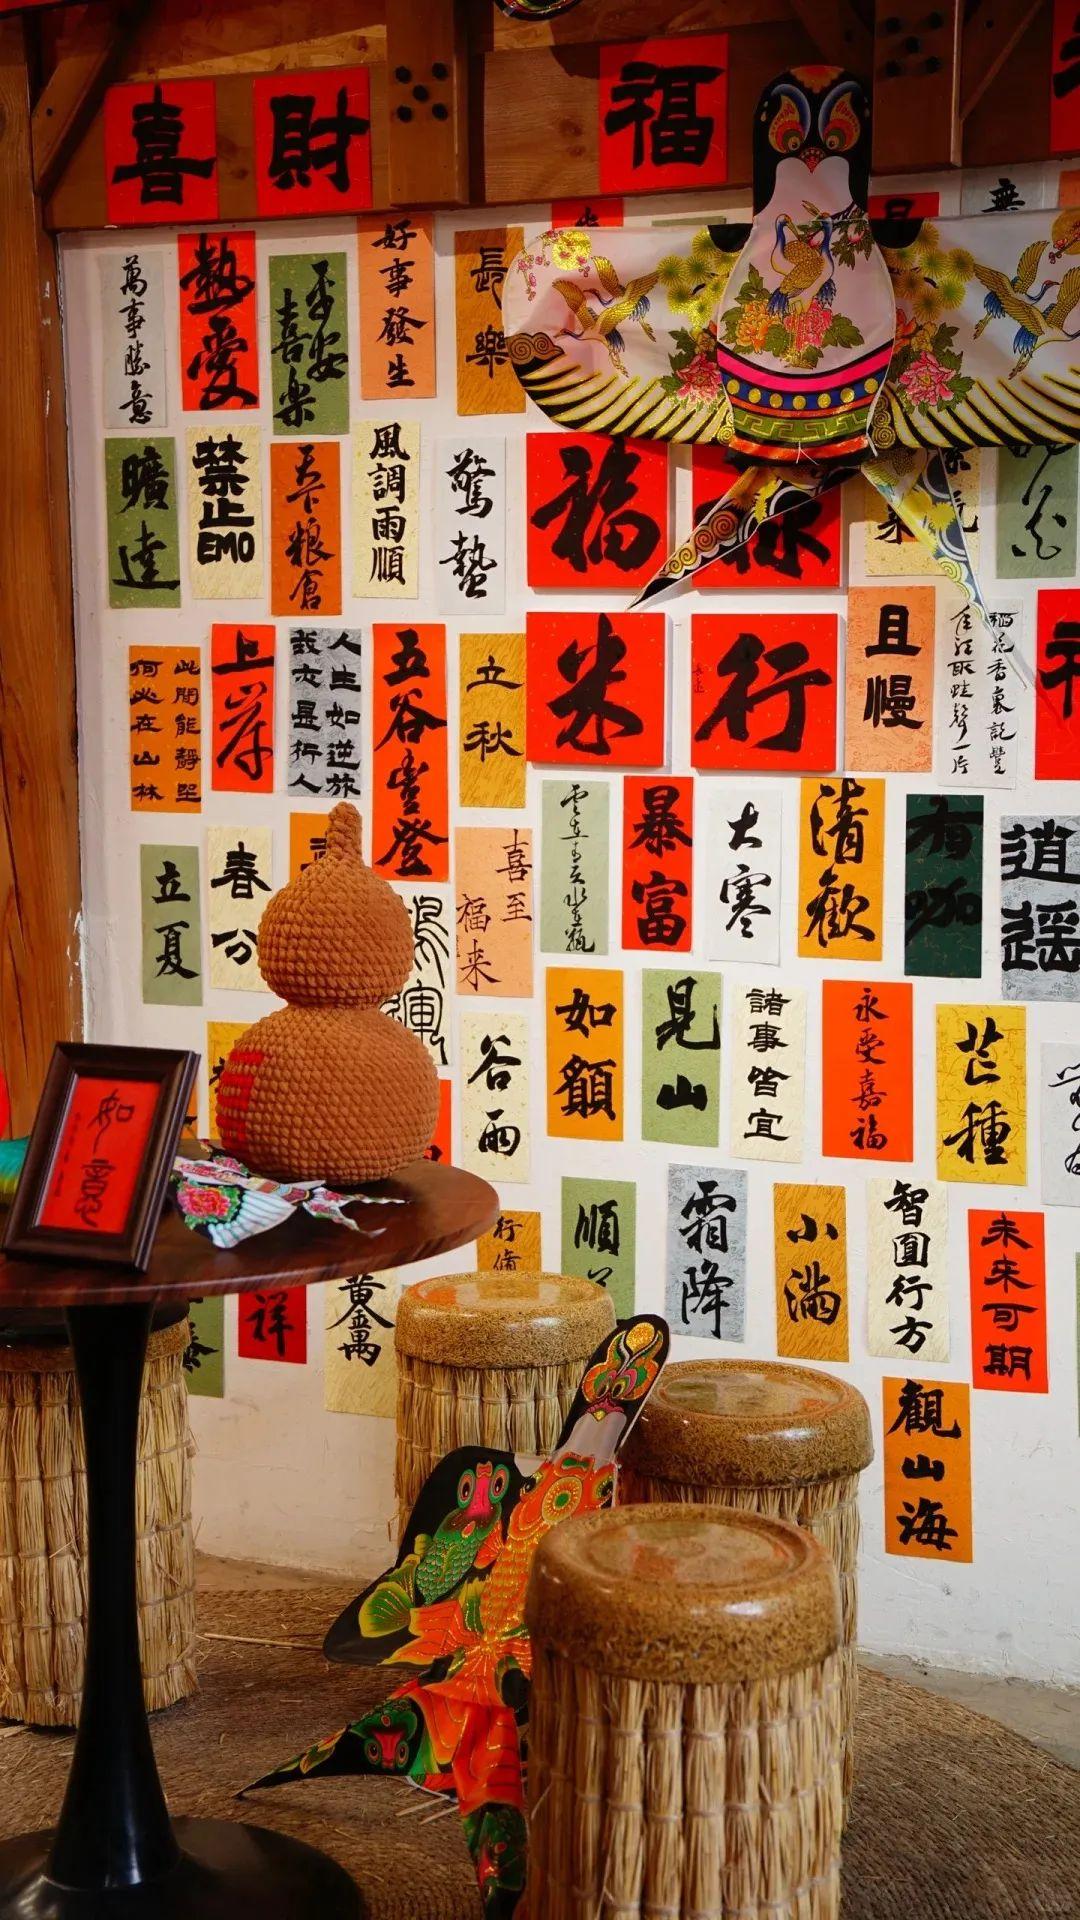 喜
財
福
萬事勝意
熱愛
平安
喜樂
好事發生
長樂
曠達
禁止EMO
天下粮倉
風調雨順
驚蟄
福
米
行
且慢
稻花香裏説豐
年聽取蛙聲一片
此間能靜坐
何必在山林
上岸
人生如逆旅
我亦是行人
五谷豐登
立秋
立夏
春分
喜至
福来
雲在青天水在瓶
暴富
大寒
清歡
有咖
逍遥
鴻運
谷雨
如願
見山
諸事皆宜
永受嘉福
芒種
如意
祥
黃金萬
順
霜降
小滿
智圓行方
未来可期
觀山海